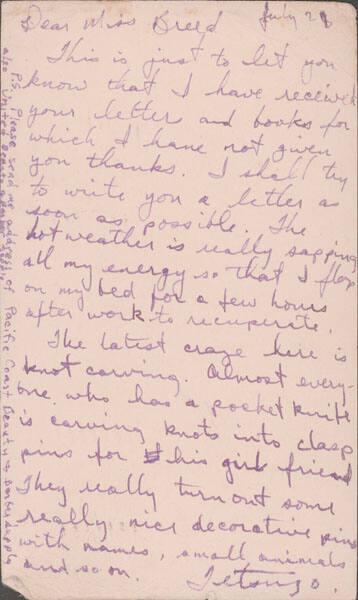 July 28
Dear Miss Breed
This is just to let you
know that I have received
your letter and books for
which I have not given
you thanks. I shall try
to write you a letter as
soon as possible. The
hot weather is really sapping
all my energy so that I flop
on my bed for a few hours
after work to recuperate.
The latest craze here is
knot carving. Almost every-
one who has a pocket knife
is carving knots into clasp
pins for his girl friend
They really turn out some
really nice decorative pins
with names, small animals
and so on. Tetsuzo.
P.S. Please send me address of Pacific Coast Beauty & Barber supply
also United Beauty &